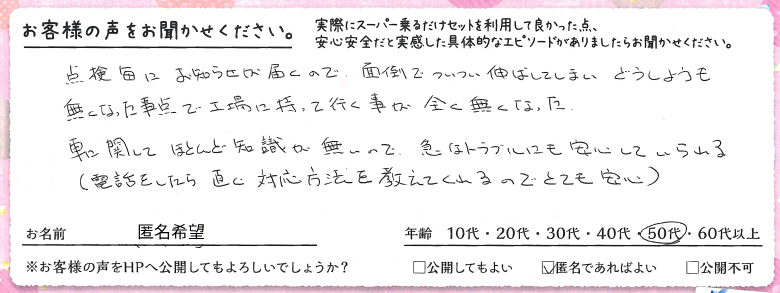 お客様の声をお聞かせください。
実際にスーパー乗るだけセットを利用して良かった点、
安心安全だと実感した具体的なエピソードがありましたらお聞かせください。
点検毎に お知らせが届くので、面倒でついつい伸ばしてしまい どうしようも
無くなった事点で工場に持って行く事が 全く無くなった.
車に関して ほとんど知識が無いので、急なトラブルにも安心していられる
(電話をしたら 直ぐ 対応方法を教えてくれるのでとても安心)
お名前 匿名希望
年齢 10代・20代・30代・40代・50代・60代以上
※お客様の声をHPへ公開してもよろしいでしょうか？ □公開してもよい ☑匿名であればよい □公開不可